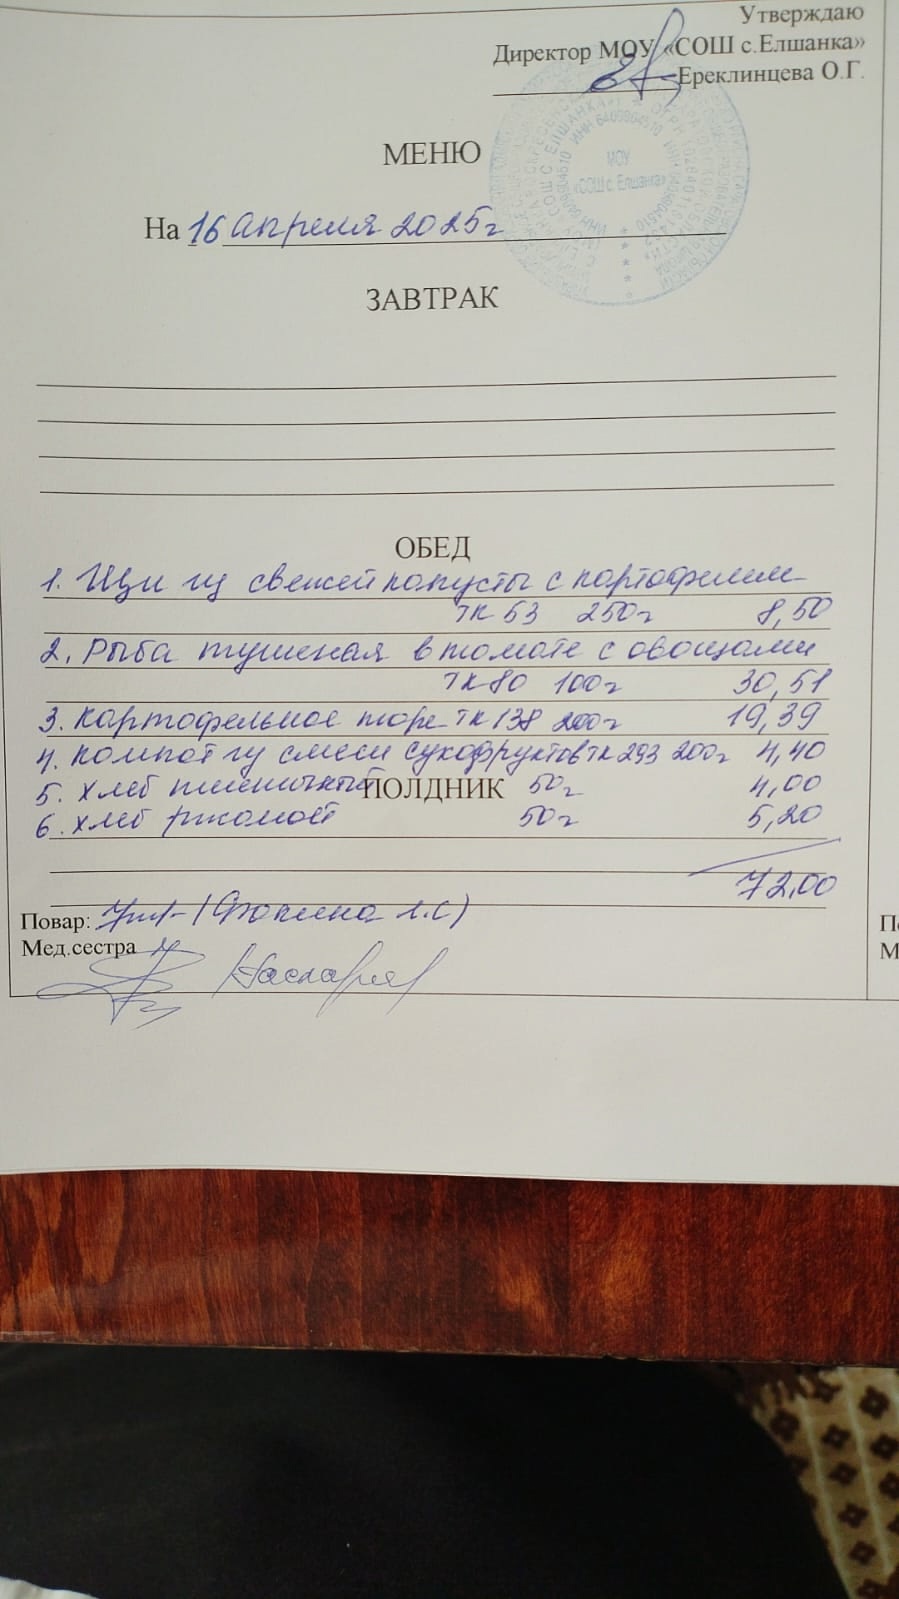 Утверждаю
Директор МОУ «СОШ с.Елшанка»
Ереклинцева О.Г.
МОУ
«СОШ с. Елшанка»
МЕНЮ
На 16 апреля 2025г
ЗАВТРАК
ОБЕД
1. Щи из свежей капусты с картофелем
ТК 63 250г 8,50
2. Рыба тушеная в томате с овощами
ТК 80 100г 30,51
3. Картофельное пюре ТК 138 200г 19,39
4. Компот из смеси сухофруктов ТК 293 200г 4,40
5. Хлеб пшеничный 50г 4,00
ПОЛДНИК
6. Хлеб ржаной 50г 5,20
72,00
Повар:
Мед.сестра